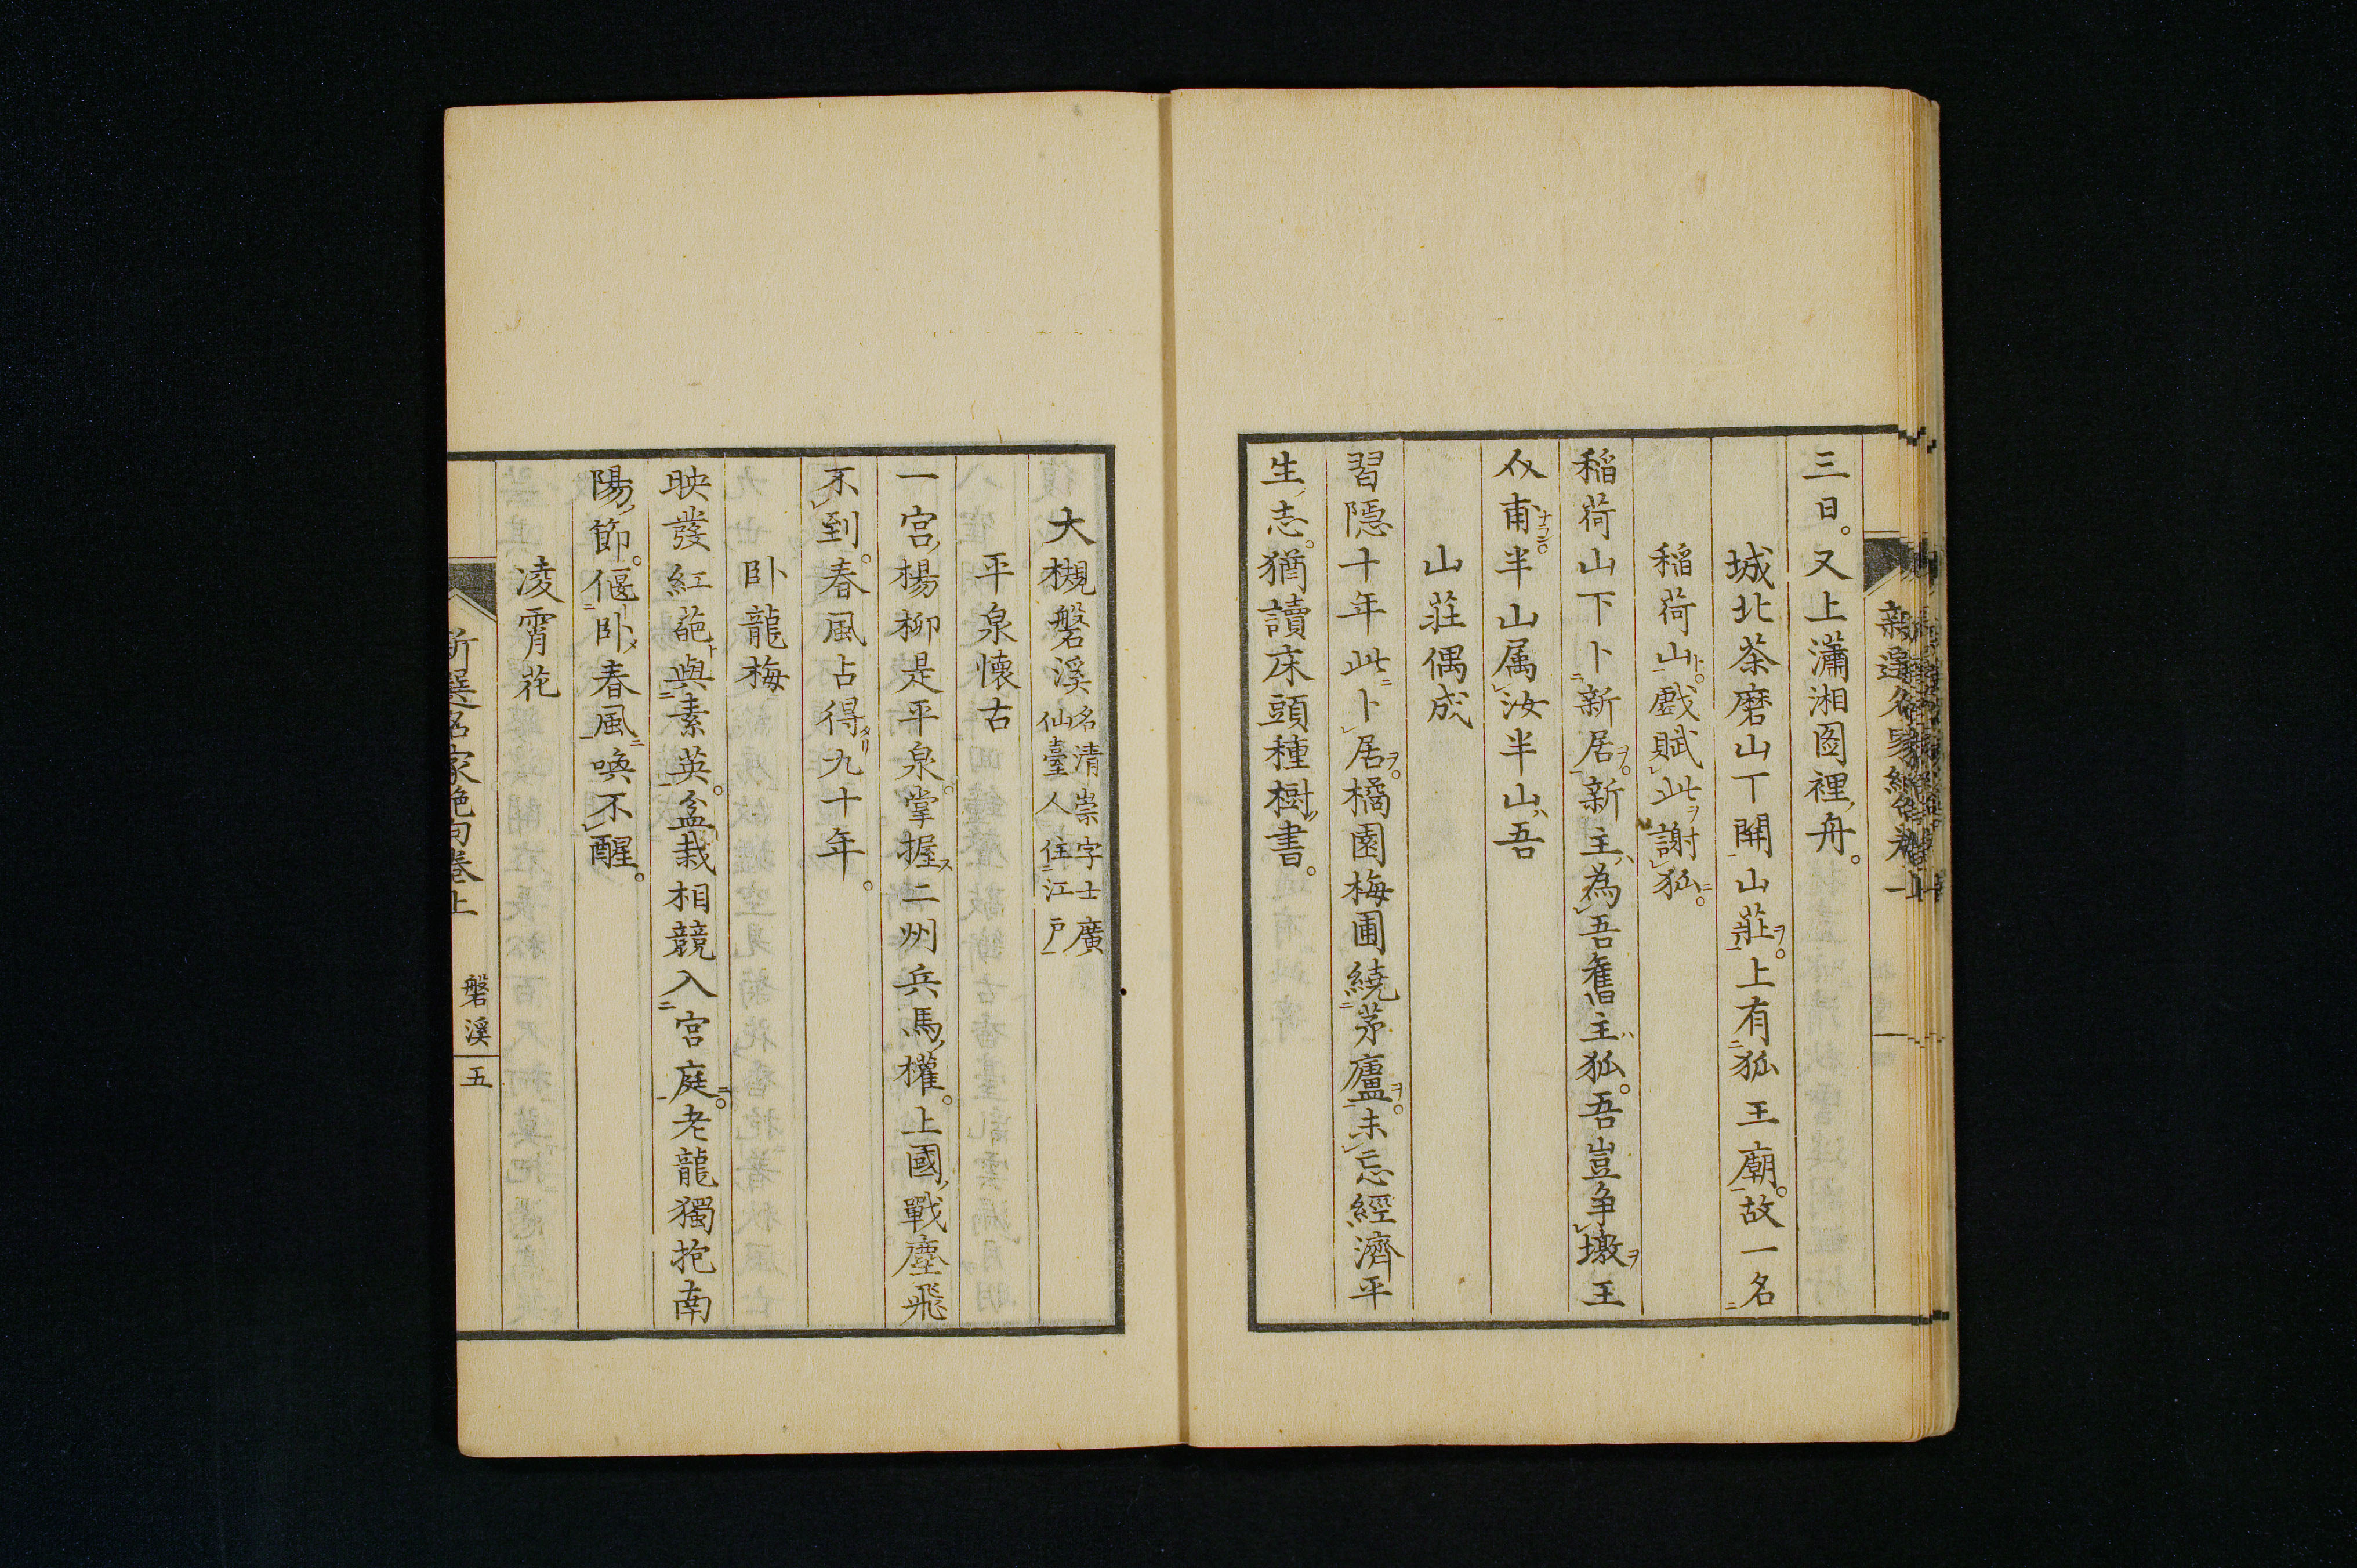 三日。又上瀟湘圖裡舟。
城北茶磨山丅開山莊ヲ。上有狐王廟。故一名
稻荷山ト。戲賦此ヲ謝狐ニ。
稻荷山下卜新居ヲ。新主ハ為吾舊主ハ狐。吾豈争墩ヲ王
介甫ナランヤ。半山属汝半山ハ吾
山莊偶成
習隱十年此ニ卜居ヲ。橘園梅圃繞茅廬ヲ。未忘經濟平
生ノ志。猶讀床頭種樹ノ書。
大槻磐溪 名清崇字士廣仙臺人住江戸
平泉懐古
一宮ノ楊柳是平泉。掌握ス二州兵馬ノ權。上國ノ戰塵飛
不到。春風占得タリ九十年。
卧龍梅
映發紅葩ト與素英。盆栽相競入宮庭ニ。老龍獨抱南
陽ノ節。偃卧メ春風ニ喚不醒。
凌霄花
新選名家絶句巻上 磐溪 五